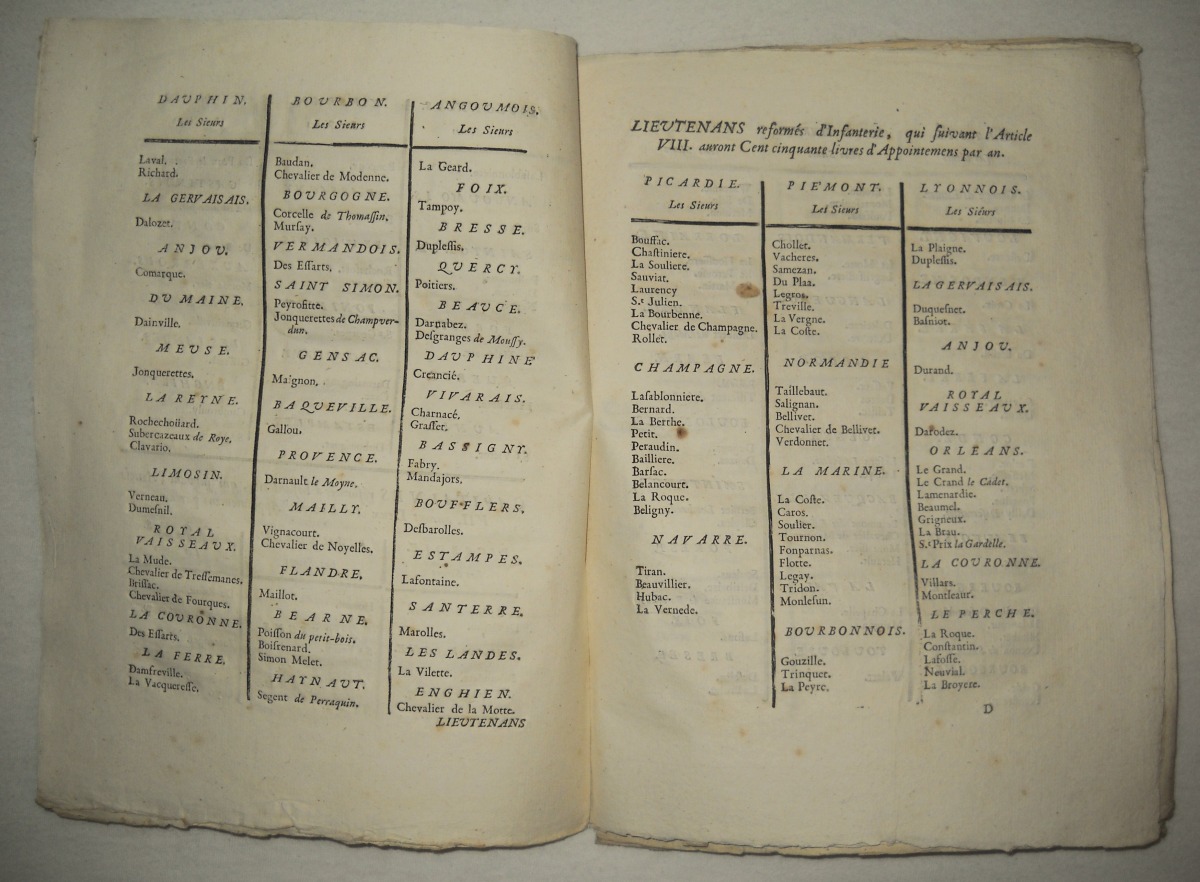 DAUPHIN.
Les Sieurs
Laval.
Richard.
LA GERVAISAIS.
Dalozet.
ANJOU.
Comarque.
DU MAINE.
Dainville.
MEUSE.
Jonquerettes.
LA REYNE.
Rochechoüard.
Subercazeaux de Roye.
Clavario.
LIMOSIN.
Verneau.
Dumesnil.
ROYAL
VAISSEAUX.
La Mude.
Chevalier de Tressemanes.
Brissac.
Chevalier de Fourques.
LA COURONNE.
Des Essarts.
LA FERRE.
Damfreville.
La Vacqueresse.
BOURBON.
Les Sieurs
Baudan.
Chevalier de Modenne.
BOURGOGNE.
Corcelle de Thomassin.
Mursay.
VERMANDOIS.
Des Essarts.
SAINT SIMON.
Peyrofitte.
Jonquerettes de Champver-
dun.
GENSAC.
Maignon.
BAQUEVILLE.
Gallou.
PROVENCE.
Darnault le Moyne.
MAILLY.
Vignacourt.
Chevalier de Noyelles.
FLANDRE.
Maillot.
BEARNE.
Poisson du petit-bois.
Boisrenard.
Simon Melet.
HAYNAUT.
Segent de Perraquin.
ANGOUMOIS.
Les Sieurs
La Geard.
FOIX.
Tampoy.
BRESSE.
Duplessis.
QUERCY.
Poitiers.
BEAUCE.
Darnabez.
Desgranges de Meussy.
DAUPHINE
Creancié.
VIVARAIS.
Charnacé.
Grasset.
BASSIGNY.
Fabry.
Mandajors.
BOUFFLERS.
Desbarolles.
ESTAMPES.
Lafontaine.
SANTERRE.
Marolles.
LES LANDES.
La Vilette.
ENGHIEN.
Chevalier de la Motte.
LIEUTENANS
LIEUTENANS reformés d'Infanterie, qui suivant l'Article
VIII. auront Cent cinquante livres d'Appointemens par an.
PICARDIE.
Les Sieurs
Boussac.
Chastiniere.
La Souliere.
Sauviat.
Laurency
S.t Julien.
La Bourbenne.
Chevalier de Champagne.
Rollet.
CHAMPAGNE.
Lasablonniere.
Bernard.
La Berthe.
Petit.
Peraudin.
Bailliere.
Barsac.
Belancourt.
La Roque.
Beligny.
NAVARRE.
Tiran.
Beauvillier.
Hubac.
La Vernede.
PIE'MONT.
Les Sieurs
Chollet.
Vacheres.
Samezan.
Du Plaa.
Legros.
Treville.
La Vergne.
La Coste.
NORMANDIE
Taillebaut.
Salignan.
Bellivet.
Chevalier de Bellivet.
Verdonnet.
LA MARINE.
La Coste.
Caros.
Soulier.
Tournon.
Fonparnas.
Flotte.
Legay.
Tridon.
Monlesun.
BOURBONNOIS.
Gouzille.
Trinquet.
La Peyre.
LYONNOIS.
Les Sieurs
La Plaigne.
Duplessis.
LA GERVAISAIS.
Duquesnet.
Basniot.
ANJOU.
Durand.
ROYAL
VAISSEAUX.
Darodez.
ORLEANS.
Le Grand.
Le Crand le Cadet.
Lamenardie.
Beaumel.
Grigneux.
La Brau.
S.t Prix la Gardelle.
LA COURONNE.
Villars.
Montleaur.
LE PERCHE.
La Roque.
Constantin.
Lafosse.
Neuvial.
La Broyere.
D